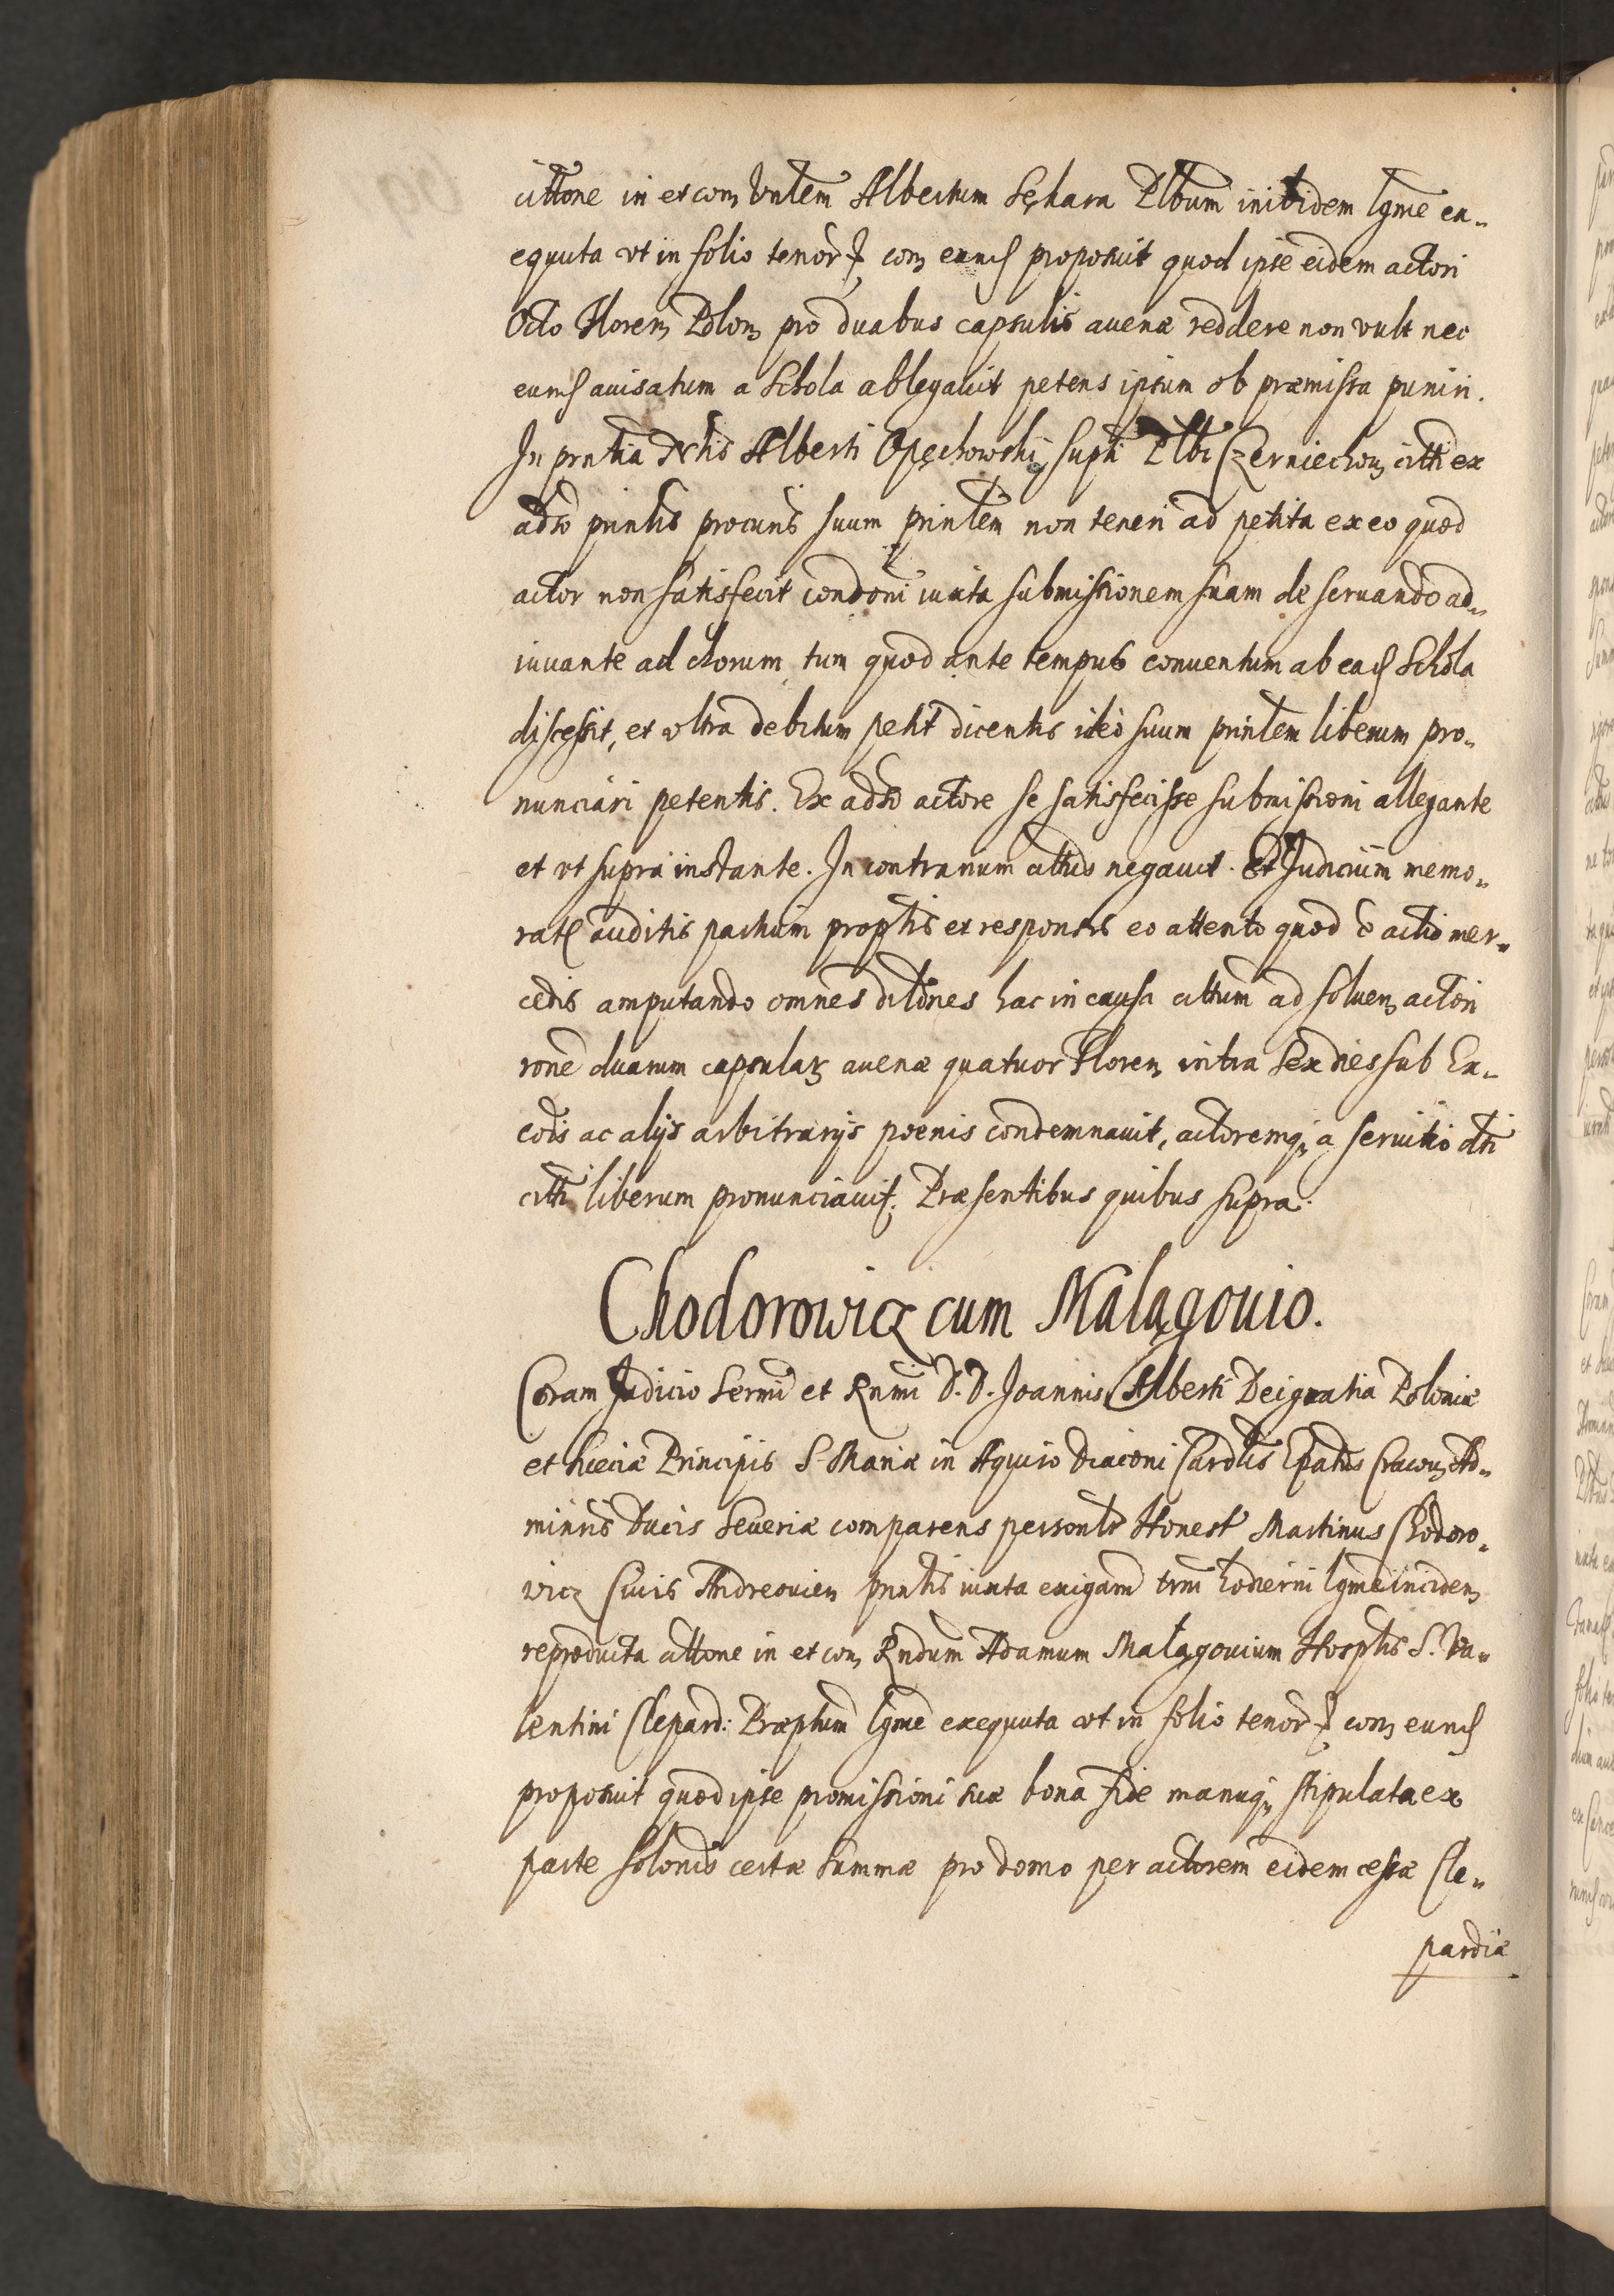 cittone in et con Vnlem Albertum Sękara Plbum inibidem lgme ex-
equuta vt in folio tenor con eund proposuit quod ipse eidem actori
Octo Floren Polon pro duabus capsulis auenæ reddere non vult nec
eund auisatum a Schola ablegauit petens ipsum ob præmissa puniri.
In pntia Nlis Alberti Opęchowski supti Plbi Czerniechow citti ex
adso pnntis procuris suum prinlem non teneri ad petita ex eo quod
actor non satisfecit condoni iuxta submissionem suam de seruando ad-
iuuante ad chorum, tum quod ante tempus conuentum ab ead Schola
discessit, et vltra debitum petit dicentis ideo suum prinlem liberum pro-
nunciari petentis. Ex adso actore se satisfecisse submissioni allegante
et vt supra instante. In contrarium cittus negauit. Et Judicium memo-
rat auditis partium proptis et responsis eo attento quod è actio mer-
cedis amputando omnes dilones hac in causa cittum ad soluen actori
rone duarum capsular auenæ quatuor Floren intra sex dies sub Ex-
cois ac alijs arbitrarijs poenis condemnauit, actoremq a seruitio dti
citti liberum pronunciauit. Præsentibus quibus supra.
Chodorowicz cum Malagouio.
Coram Judicio Sermi et Rnmi D. D. Joannis Alberti Dei gratia Poloniæ
et Sueciæ Principis S. Mariæ in Aquiro Diaconi Cardlis Epatus Cracou Ad-
minris Ducis Seueriæ comparens personlr Honest Martinus Chodoro-
wicz Ciuis Andreouien pnntis iuxta exigam trni hodierni lgme inciden
reproducta cittone in et con Rndum Adamum Malagouium Hosptlis S. Va-
lentini Clepard: Præptum lgme exequuta vt in folio tenor con eund
proposuit quod ipse promissioni suæ bona fide manuq stipulata ex
parte solonis certæ summæ pro domo per actorem eidem cessæ Cle-
pardiæ